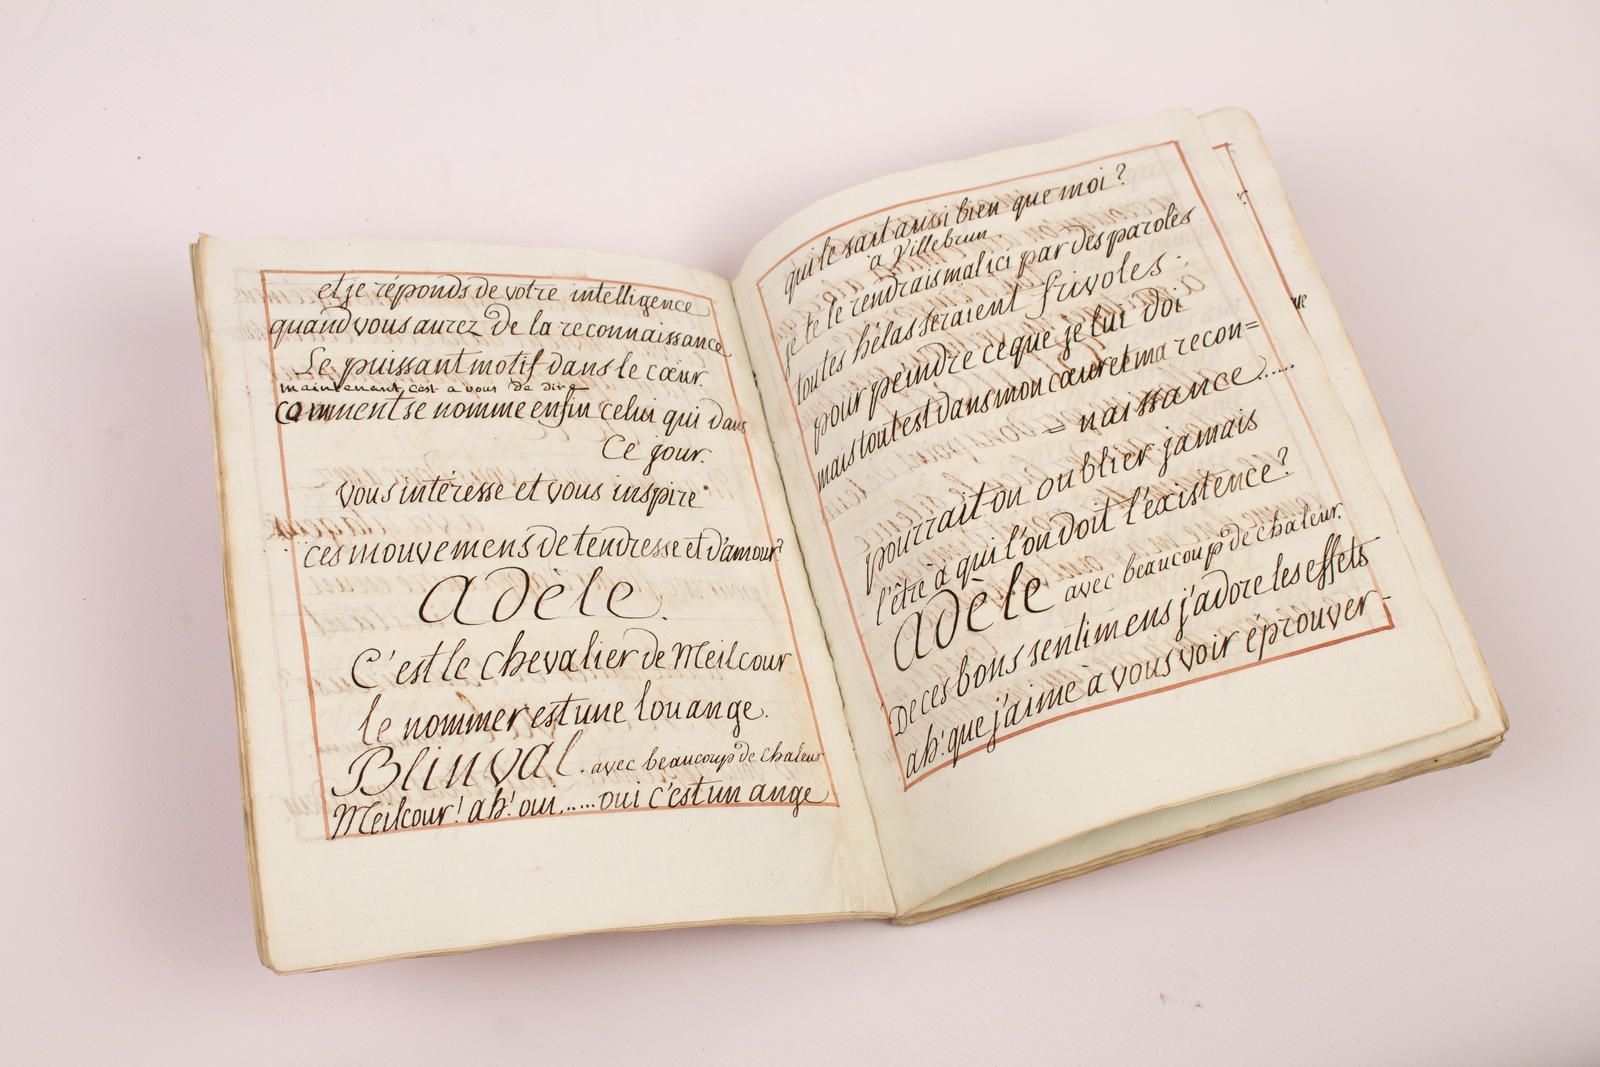 et je réponds de votre intelligence
quand vous aurez de la reconnaissance
Le puissant motif dans le cœur.
maintenant, c'est a vous de dire
comment se nomme enfin celui qui dans
ce jour.
vous intéresse et vous inspire
ces mouvemens de tendresse et d'amour?
Adèle.
C'est le chevalier de Meilcour
le nommer est une louange.
Blinval. avec beaucoup de chaleur
Meilcour! ah! oui...... oui c'est un ange
qui le sait aussi bien que moi?
à Villebrun.
je te le rendrais mal ici par des paroles
toutes hélas seraient frivoles.
pour peindre ce que je lui doi
mais tout est dans mon cœur et ma recon=
= naissance......
pourrait-on oublier jamais
l'être à qui l'on doit l'existence?
Adèle avec beaucoup de chaleur.
De ces bons sentimens j'adore les effets
ah! que j'aime à vous voir éprouver